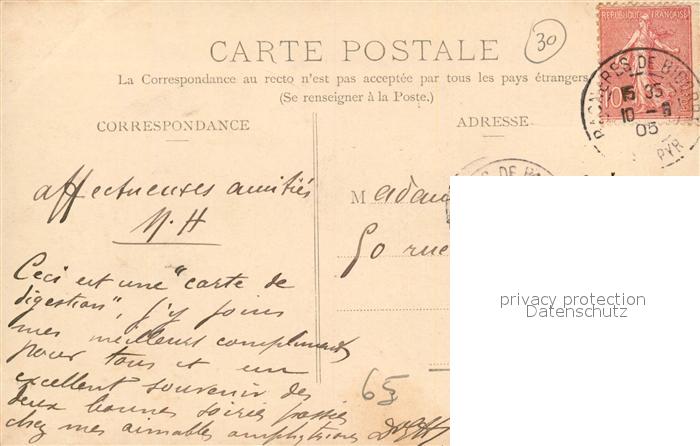 30
RÉPUBLIQUE FRANÇAISE
10
CARTE POSTALE
La Correspondance au recto n'est pas acceptée par tous les pays étrangers
(Se renseigner à la Poste.)
BAGNÈRES DE BIGOR
15 35
10 - 6
05
PYR
CORRESPONDANCE
ADRESSE
affectueuses amitiés
N. H
Madam
50 rue
Ceci est une "carte de
digestion", j'y joins
mes meilleurs compliments
pour tous et un
excellent souvenir des
deux bonnes soirées passées
chez mes aimables amphytrions
65
privacy protection
Datenschutz